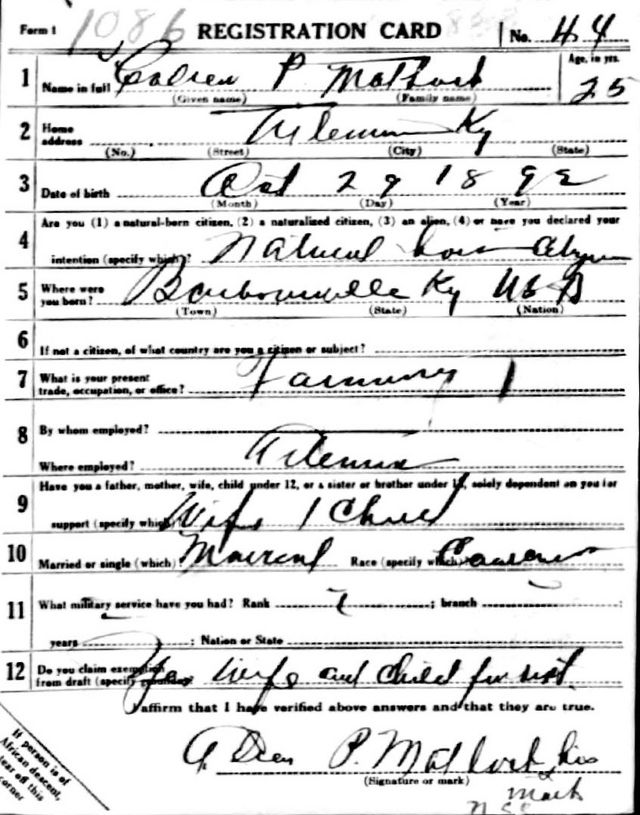 Form 1 1086 REGISTRATION CARD No. 44
1 Name in full P Matlock Age, in yrs. 25
(Given name) (Family name)
2 Home address Ky
(No.) (Street) (City) (State)
3 Date of birth Oct 29 1892
(Month) (Day) (Year)
4 Are you (1) a natural-born citizen, (2) a naturalized citizen, (3) an alien, (4) or have you declared your
intention (specify which)? Natural born
5 Where were you born? Barbourville Ky USA
(Town) (State) (Nation)
6 If not a citizen, of what country are you a citizen or subject?
7 What is your present trade, occupation, or office? Farming
8 By whom employed?
Where employed?
9 Have you a father, mother, wife, child under 12, or a sister or brother under 12, solely dependent on you for
support (specify which)? Wife 1 Child
10 Married or single (which)? Married Race (specify which)?
11 What military service have you had? Rank ; branch ;
years ; Nation or State
12 Do you claim exemption from draft (specify grounds)? Yes Wife and child
I affirm that I have verified above answers and that they are true.
P. Matlock his
(Signature or mark)
mark
If person is of
African descent,
tear off this
corner